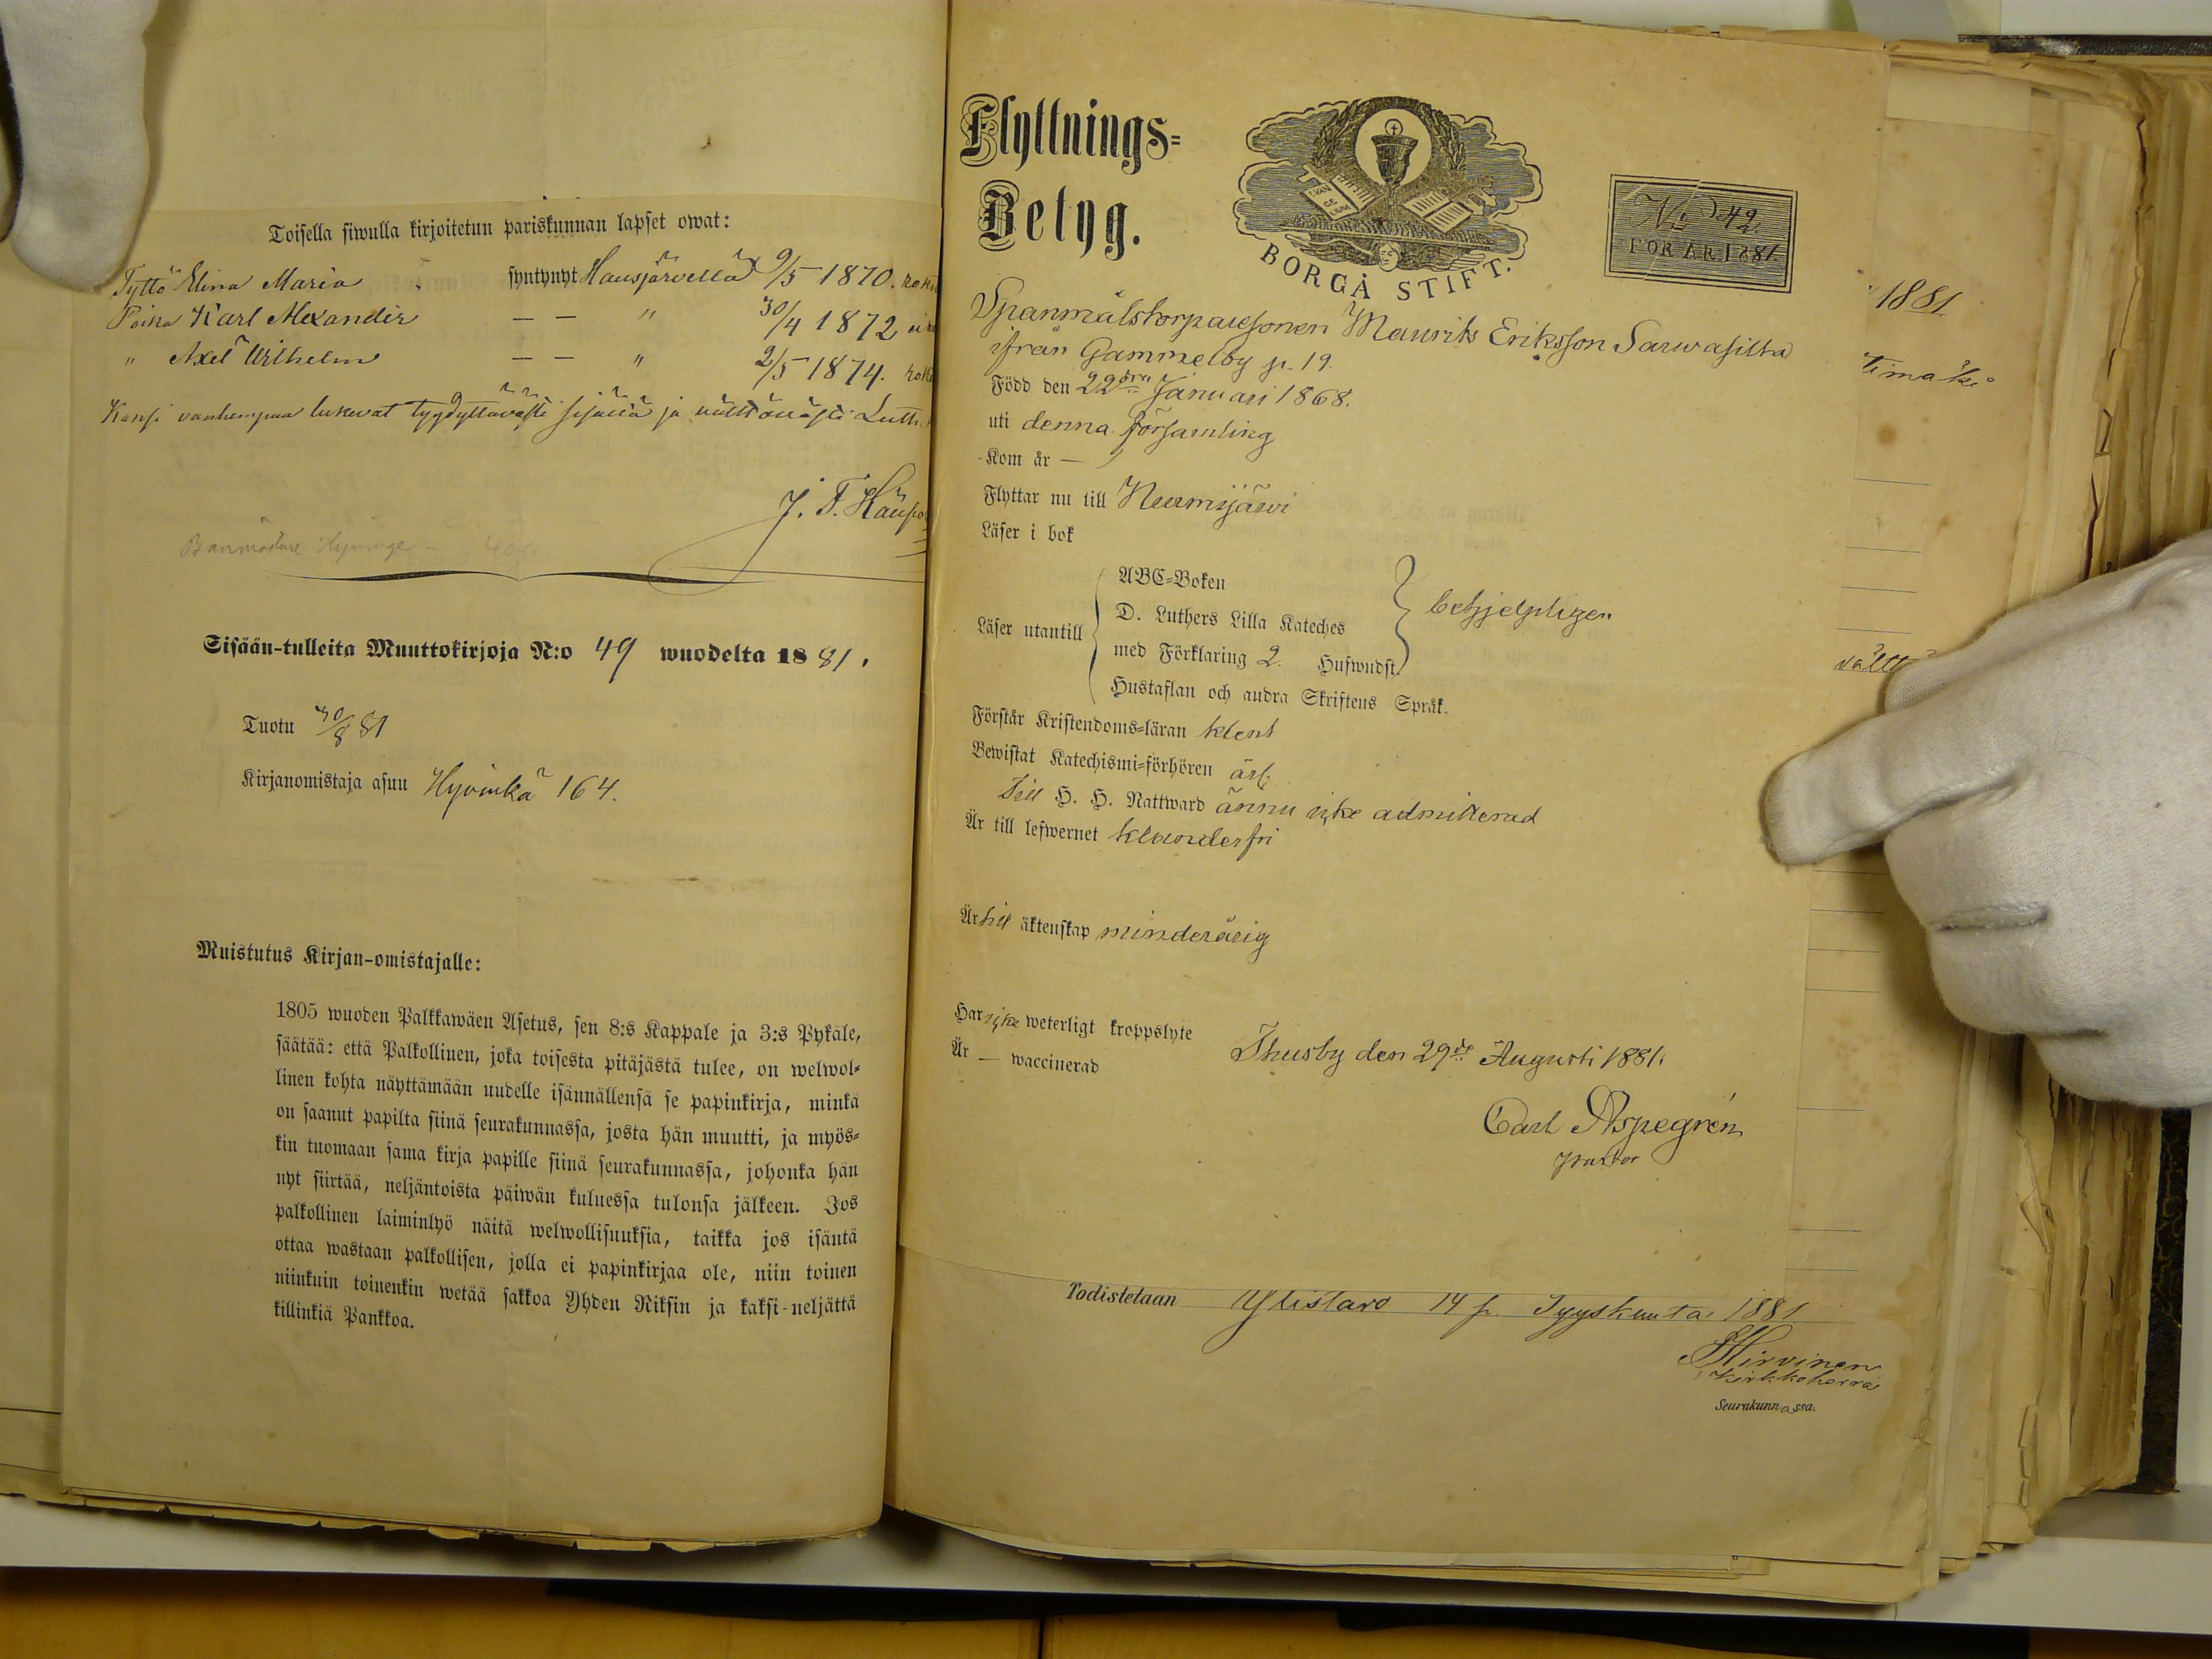 Toisella siwulla kirjoitetun pariskunnan lapset owat:
Tyttö Elina Maria syntynyt Hausjärvellä 9/5 1870.
Poika Karl Alexander — — " 30/4 1872
" Axel Wilhelm — — " 2/5 1874.
vanhempaa lukevat tyydyttävästi sisältä ja Luth.
J. F.
Hyvinge
Sisään-tulleita Muuttokirjoja N:o 49 wuodelta 1881.
Tuotu 30/8 81
Kirjanomistaja asuu Hyvinkä 164.
Muistutus Kirjan-omistajalle:
1805 wuoden Palkkawäen Asetus, sen 8:s Kappale ja 3:s Pykäle,
säätää: että Palkollinen, joka toisesta pitäjästä tulee, on welwol-
linen kohta näyttämään uudelle isännällensä se papinkirja, minkä
on saanut papilta siinä seurakunnassa, josta hän muutti, ja myös-
kin tuomaan sama kirja papille siinä seurakunnassa, johonka hän
nyt siirtää, neljäntoista päiwän kuluessa tulonsa jälkeen. Jos
palkollinen laiminlyö näitä welwollisuuksia, taikka jos isäntä
ottaa wastaan palkollisen, jolla ei papinkirjaa ole, niin toinen
niinkuin toinenkin wetää sakkoa Yhden Riksin ja kaksi-neljättä
killinkiä Pankkoa.
Flyttnings-
Betyg.
EVAN
GE
LIUM
BORGÅ STIFT.
No 49.
FÖR ÅR 1881
Spanmålstorparesonen Maurits Eriksson Sarwasilta
ifrån Gammelby p. 19.
Född den 22dra Januari 1868.
uti denna församling
Kom år —
Flyttar nu till Nurmijärvi
Läser i bok
Läser utantill
ABC-Boken
D. Luthers Lilla Kateches
med Förklaring 2. Hufwudst.
Hustaflan och andra Skriftens Språk.
behjelpligen
Förstår Kristendoms-läran klent
Bewistat Katechismi-förhören årl.
Till H. H. Nattward ännu icke admitterad
Är till lefwernet klanderfri
Är till äktenskap minderårig
Har icke weterligt kroppslyte
Är — waccinerad
Thusby den 29de Augusti 1881.
Carl Aspegrén
pastor
1881
vältt
Todistetaan Ylistaro 14 p. Syyskuuta 1881
Hirvinen
Kirkkoherra
Seurakunnassa.